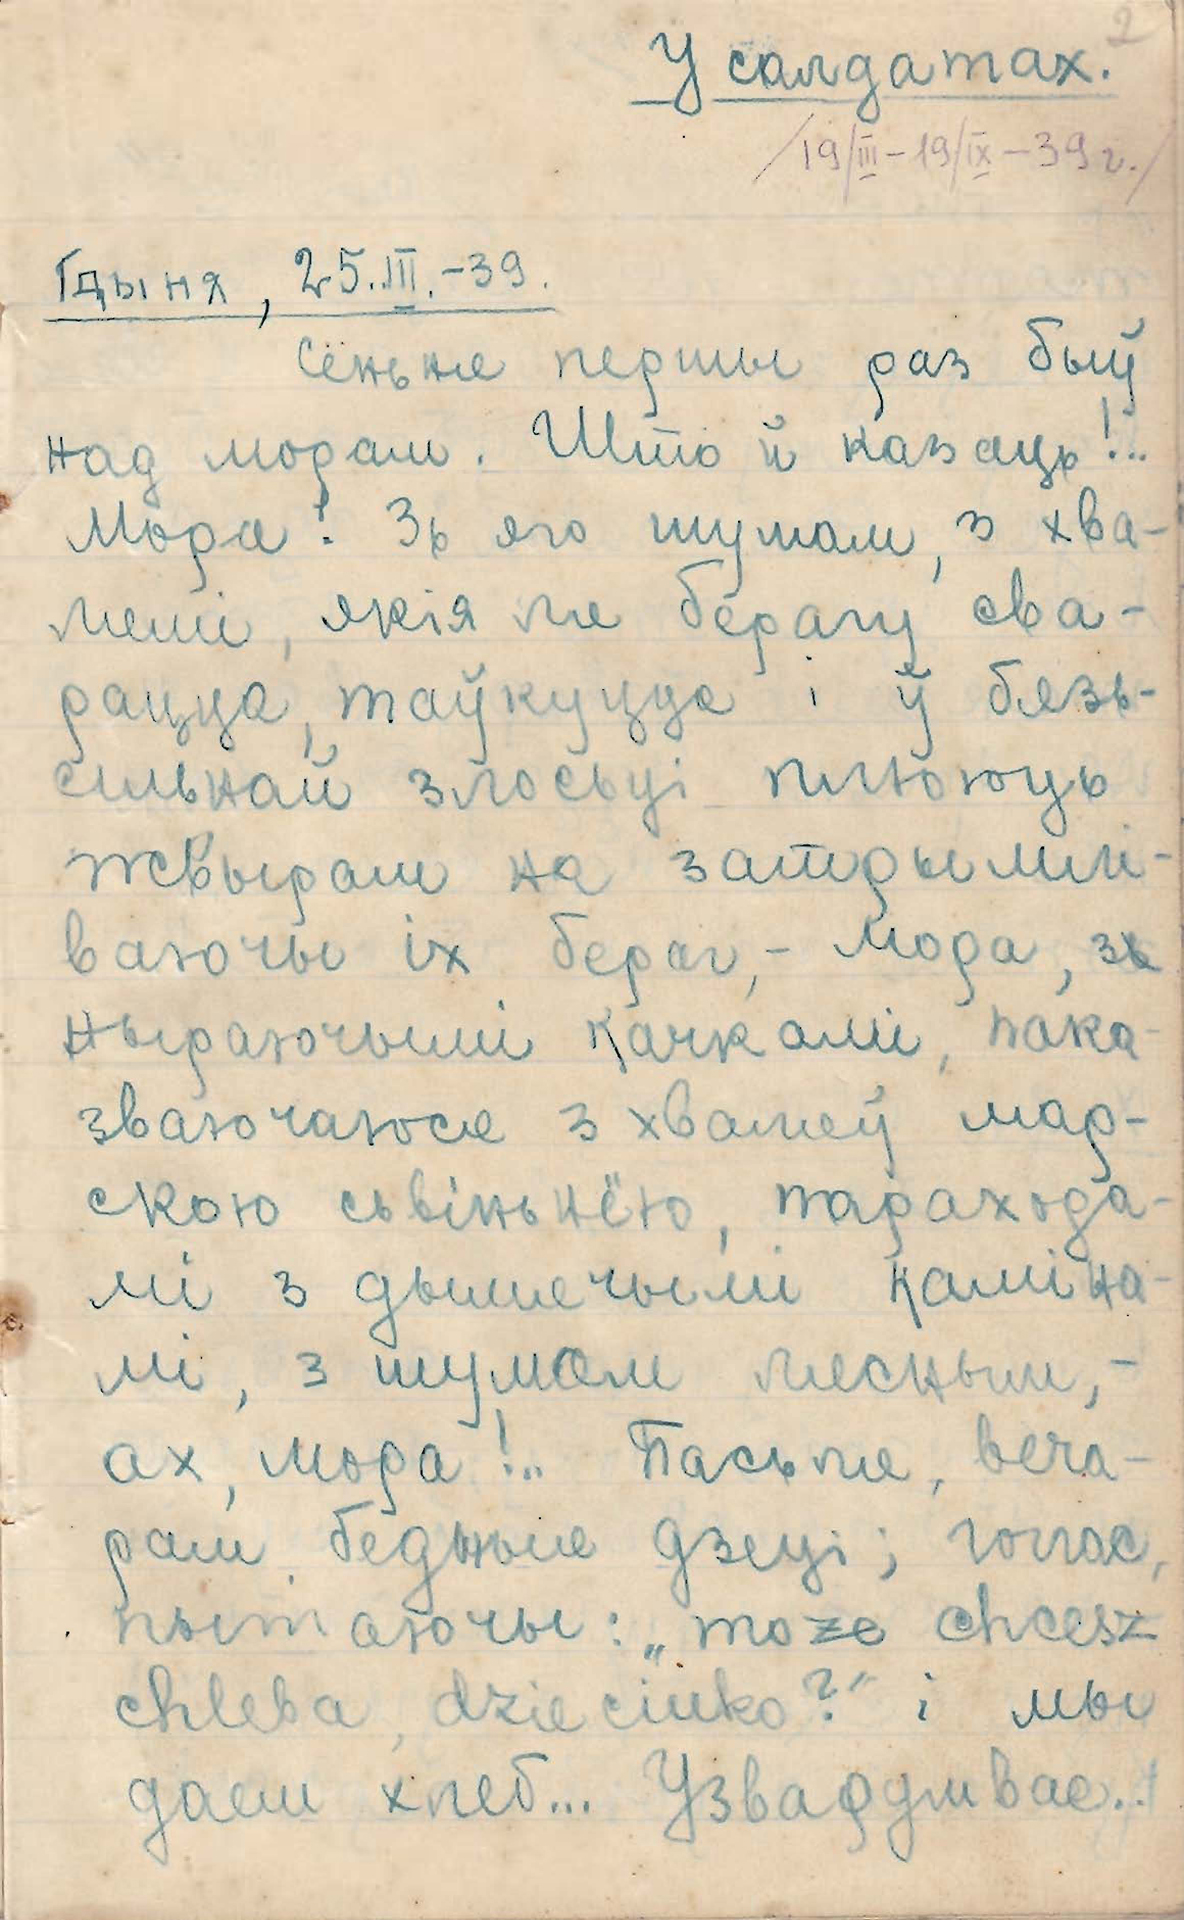 2
У салдатах.
/19/III – 19/IX – 39 г./
Гдыня, 25.III.-39.
Сёньня першы раз быў
над морам. Што й казаць!..
Мора! Зь яго шумам, з хва-
лямі, якія ля берагу сва-
рацца, таўкуцца і ў бязь-
сільнай злосьці плююць
жвырам на затрымлі-
ваючы іх бераг, – мора, зь
ныраючымі качкамі, пака-
зваючаюся з хваляў мар-
скою сьвіньнёю, парахода-
мі з дымячымі каміна-
мі, з шумам лясным, –
ах, мора!.. Пасьля, веча-
рам бедныя дзеці; голас,
пытаючы: „może chcesz
chleba, dziecinko?" і мы
даем хлеб... Узвардывае..